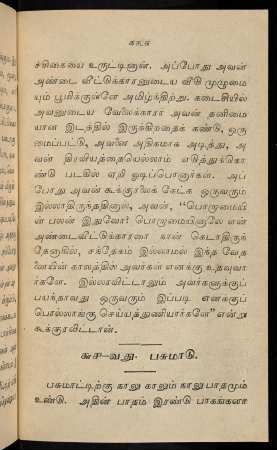 சரிகையை உருட்டினான். அப்போது அவன்
அண்டை வீட்டுக்காரனுடைய வீடு முழுமை
யும் பூமிக்குள்ளே அமிழ்கிற்று. கடைசியில்
அவனுடைய வேலைக்காரா அவன் தனிமை
யான இடத்தில் இருக்கிறதைக் கண்டு, ஒரு
மைப்பட்டு, அவனை அதிகமாக அடித்து, அ
வன் திரவியத்தையெல்லாம் எடுத்துக்கொ
ண்டு படகில் ஏறி ஓடிப்போனார்கள். அப்
போது அவன் கூக்குரலைக் கேட்க ஒருவரும்
இல்லாதிருந்ததினால், அவன், “பொறாமையி
ன் பலன் இதுவோ! பொறாமையினாலே என்
அண்டைவீட்டுக்காரரை நான் கெடாதிருந்
தேனாகில், சந்தேகம் இல்லாமல் இந்த வேத
னையின் காலத்தில் அவர்கள் எனக்கு உதவுவா
ர்களே. இல்லாவிட்டாலும் அவர்களுக்குப்
பயந்தாவது ஒருவரும் இப்படி எனக்குப்
பொல்லாங்கு செய்யத்துணியார்களே” என்று
கூக்குரலிட்டான்.
௬௪-வது. பசுமாடு.
பசுமாட்டிற்கு நாலு காலும் நாலு பாதமும்
உண்டு. அதின் பாதம் இரண்டு பாகங்களா